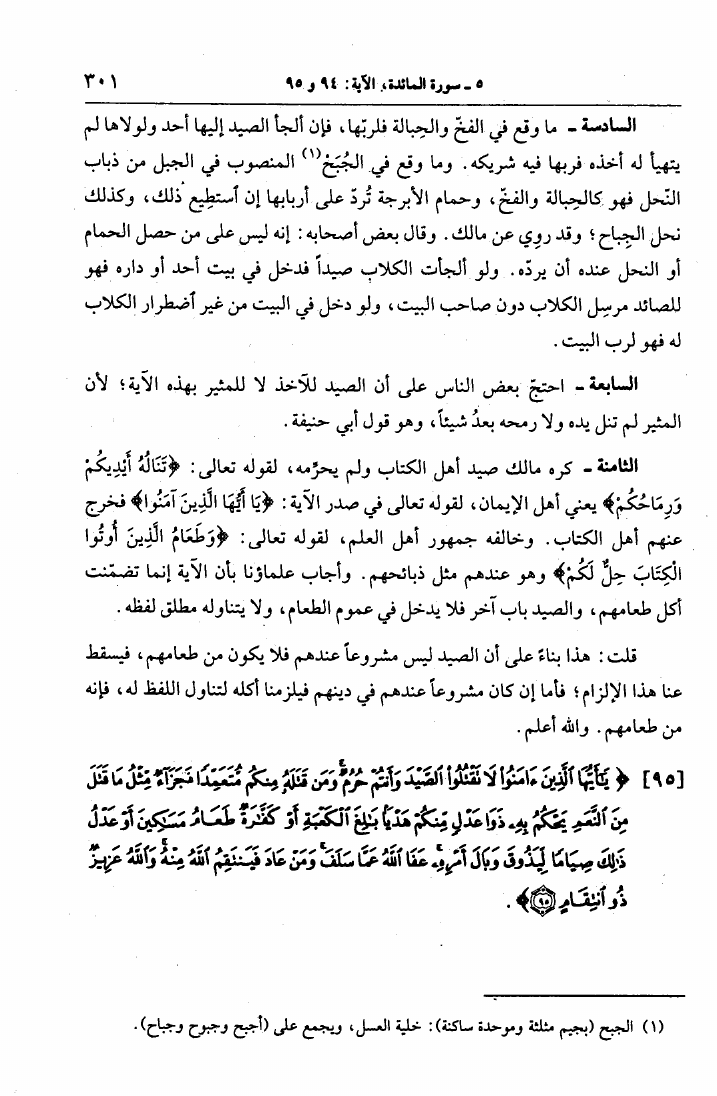 ٥ ـ سورة المائدة، الآية: ٩٤ و ٩٥
٣٠١
السادسة ـ ما وقع في الفخّ والحِبالة فلربّها، فإن ألجأ الصيد إليها أحد ولولاها لم
يتهيأ له أخذه فربها فيه شريكه. وما وقع في الجُبَح(١) المنصوب في الجبل من ذباب
النّحل فهو كالحِبالة والفخّ، وحمام الأبرجة تُردّ على أربابها إن ٱستطِيع ذلك، وكذلك
نحل الجِباح؛ وقد روِي عن مالك. وقال بعض أصحابه: إنه ليس على من حصل الحمام
أو النحل عنده أن يردّه. ولو ألجأت الكلاب صيداً فدخل في بيت أحد أو داره فهو
للصائد مرسِل الكلاب دون صاحب البيت، ولو دخل في البيت من غير ٱضطرار الكلاب
له فهو لرب البيت.
السابعة ـ احتجّ بعض الناس على أن الصيد للآخذ لا للمثير بهذه الآية؛ لأن
المثير لم تنل يده ولا رمحه بعدُ شيئاً، وهو قول أبي حنيفة.
الثامنة ـ كره مالك صيد أهل الكتاب ولم يحرّمه، لقوله تعالى: ﴿تَنَالُهُ أَيْدِيكُمْ
وَرِمَاحُكُمْ﴾ يعني أهل الإيمان، لقوله تعالى في صدر الآية: ﴿يَا أَيُّهَا الَّذِينَ آمَنُوا﴾ فخرج
عنهم أهل الكتاب. وخالفه جمهور أهل العلم، لقوله تعالى: ﴿وَطَعَامُ الَّذِينَ أُوتُوا
الْكِتَابَ حِلٌّ لَكُمْ﴾ وهو عندهم مثل ذبائحهم. وأجاب علماؤنا بأن الآية إنما تضمّنت
أكل طعامهم، والصيد باب آخر فلا يدخل في عموم الطعام، ولا يتناوله مطلق لفظه.
قلت: هذا بناءً على أن الصيد ليس مشروعاً عندهم فلا يكون من طعامهم، فيسقط
عنا هذا الإلزام؛ فأما إن كان مشروعاً عندهم في دينهم فيلزمنا أكله لتناول اللفظ له، فإنه
من طعامهم. والله أعلم.
[٩٥] ﴿ يَٰٓأَيُّهَا ٱلَّذِينَ ءَامَنُواْ لَا تَقْتُلُواْ ٱلصَّيْدَ وَأَنتُمْ حُرُمٌ ۚ وَمَن قَتَلَهُۥ مِنكُم مُّتَعَمِّدًا فَجَزَآءٌ مِّثْلُ مَا قَتَلَ
مِنَ ٱلنَّعَمِ يَحْكُمُ بِهِۦ ذَوَا عَدْلٍ مِّنكُمْ هَدْيًۢا بَٰلِغَ ٱلْكَعْبَةِ أَوْ كَفَّٰرَةٌ طَعَامُ مَسَٰكِينَ أَوْ عَدْلُ
ذَٰلِكَ صِيَامًا لِّيَذُوقَ وَبَالَ أَمْرِهِۦ ۗ عَفَا ٱللَّهُ عَمَّا سَلَفَ ۚ وَمَنْ عَادَ فَيَنتَقِمُ ٱللَّهُ مِنْهُ ۗ وَٱللَّهُ عَزِيزٌ
ذُو ٱنتِقَامٍ ۝٩٥﴾.
(١) الجبح (بجيم مثلثة وموحدة ساكنة): خلية العسل، ويجمع على (أجبح وجبوح وجباح).